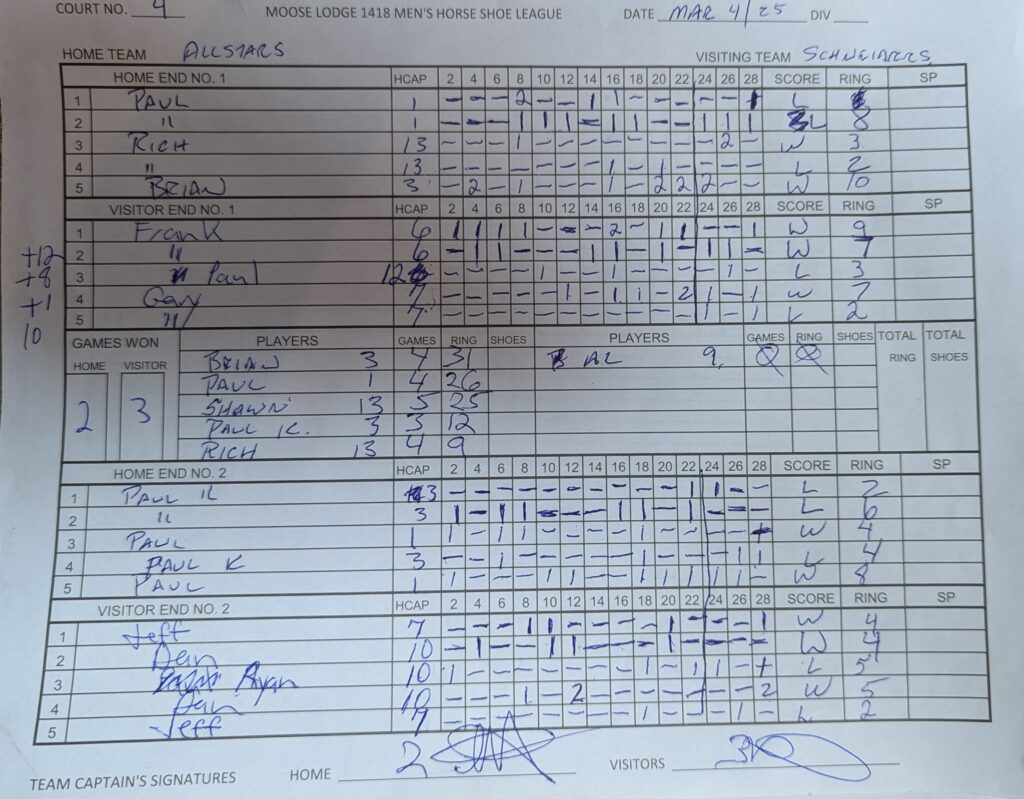 COURT NO. 4 MOOSE LODGE 1418 MEN'S HORSE SHOE LEAGUE DATE MAR 4/25 DIV
HOME TEAM ALLSTARS VISITING TEAM
HOME END NO. 1 HCAP 2 4 6 8 10 12 14 16 18 20 22 24 26 28 SCORE RING SP
1 PAUL 1 - - - 2 - - 1 1 - - - - - 1 L
2 " 1 - - - 1 1 1 - 1 1 - - 1 1 1 L 8
3 RICH 13 - - - 1 - - - - - - - - 2 - W 3
4 " 13 - - - - - - - 1 - 1 - - - - L 2
5 BRIAN 3 - 2 - 1 - - - 1 - 2 2 2 - - W 10
VISITOR END NO. 1 HCAP 2 4 6 8 10 12 14 16 18 20 22 24 26 28 SCORE RING SP
1 Frank 6 1 1 1 1 - - - 2 - 1 1 - - 1 W 9
+12 2 " 6 - 1 1 - - - 1 1 - 1 - 1 1 - W 7
+8 3 Paul 12 - - - - 1 - - 1 - - - - 1 - L 3
+1 4 Gary 7 - - - - - 1 - 1 1 - 2 1 - 1 W 7
10 5 " 7 - - - - - - - - - - - 1 - 1 L 2
GAMES WON PLAYERS GAMES RING SHOES PLAYERS GAMES RING SHOES TOTAL RING TOTAL SHOES
HOME VISITOR
2 3
BRIAN 3 4 31 AL 9
PAUL 1 4 26
SHAWN 13 5 25
PAUL K. 3 3 12
RICH 13 4 9
HOME END NO. 2 HCAP 2 4 6 8 10 12 14 16 18 20 22 24 26 28 SCORE RING SP
1 PAUL K 3 - - - - - - - - - - 1 1 - - L 2
2 " 3 1 - 1 1 - - - 1 1 - 1 - - - L 6
3 PAUL 1 1 - 1 1 - - - - - 1 - - - + W 4
4 PAUL K 3 - - 1 - - - - - 1 - - - 1 1 L 4
5 PAUL 1 1 - - - 1 1 - - 1 1 1 1 1 - W 8
VISITOR END NO. 2 HCAP 2 4 6 8 10 12 14 16 18 20 22 24 26 28 SCORE RING SP
1 Jeff 7 - - - 1 1 - - - - 1 - - - 1 W 4
2 Dan 10 - 1 - - 1 1 - - - 1 - - - - W 4
3 Ryan 10 1 - - - - - - - 1 - 1 1 - + L 5
4 Dan 10 - - - 1 - 2 - - - - - - - 2 W 5
5 Jeff 7 - - - - - - - - 1 - - - 1 - L 2
TEAM CAPTAIN'S SIGNATURES HOME 2 VISITORS 3